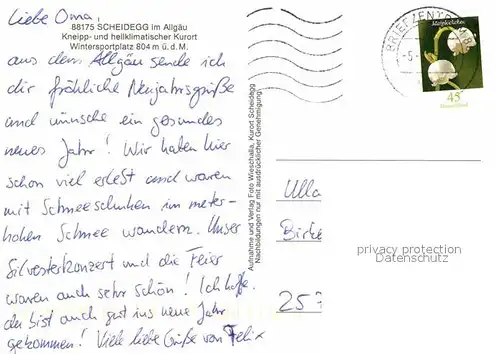 Liebe Oma,
88175 SCHEIDEGG im Allgäu
Kneipp- und heilklimatischer Kurort
Wintersportplatz 804 m ü.d.M.
aus dem Allgäu sende ich
dir fröhliche Neujahrsgrüße
und wünsche ein gesundes
neues Jahr! Wir haben hier
schon viel erlebt und waren
mit Schneeschuhen im meter-
hohen Schnee wandern. Unser
Silvesterkonzert und die Feier
waren auch sehr schön! Ich hoffe,
du bist auch gut ins neue Jahr
gekommen! Viele liebe Grüße von Felix
Aufnahme und Verlag Foto Wieschalla, Kurort Scheidegg
Nachbildungen nur mit ausdrücklicher Genehmigung!
BRIEFZENTRUM 88
Maiglöckchen
45
Deutschland
Ulla
Birke
privacy protection
Datenschutz
25